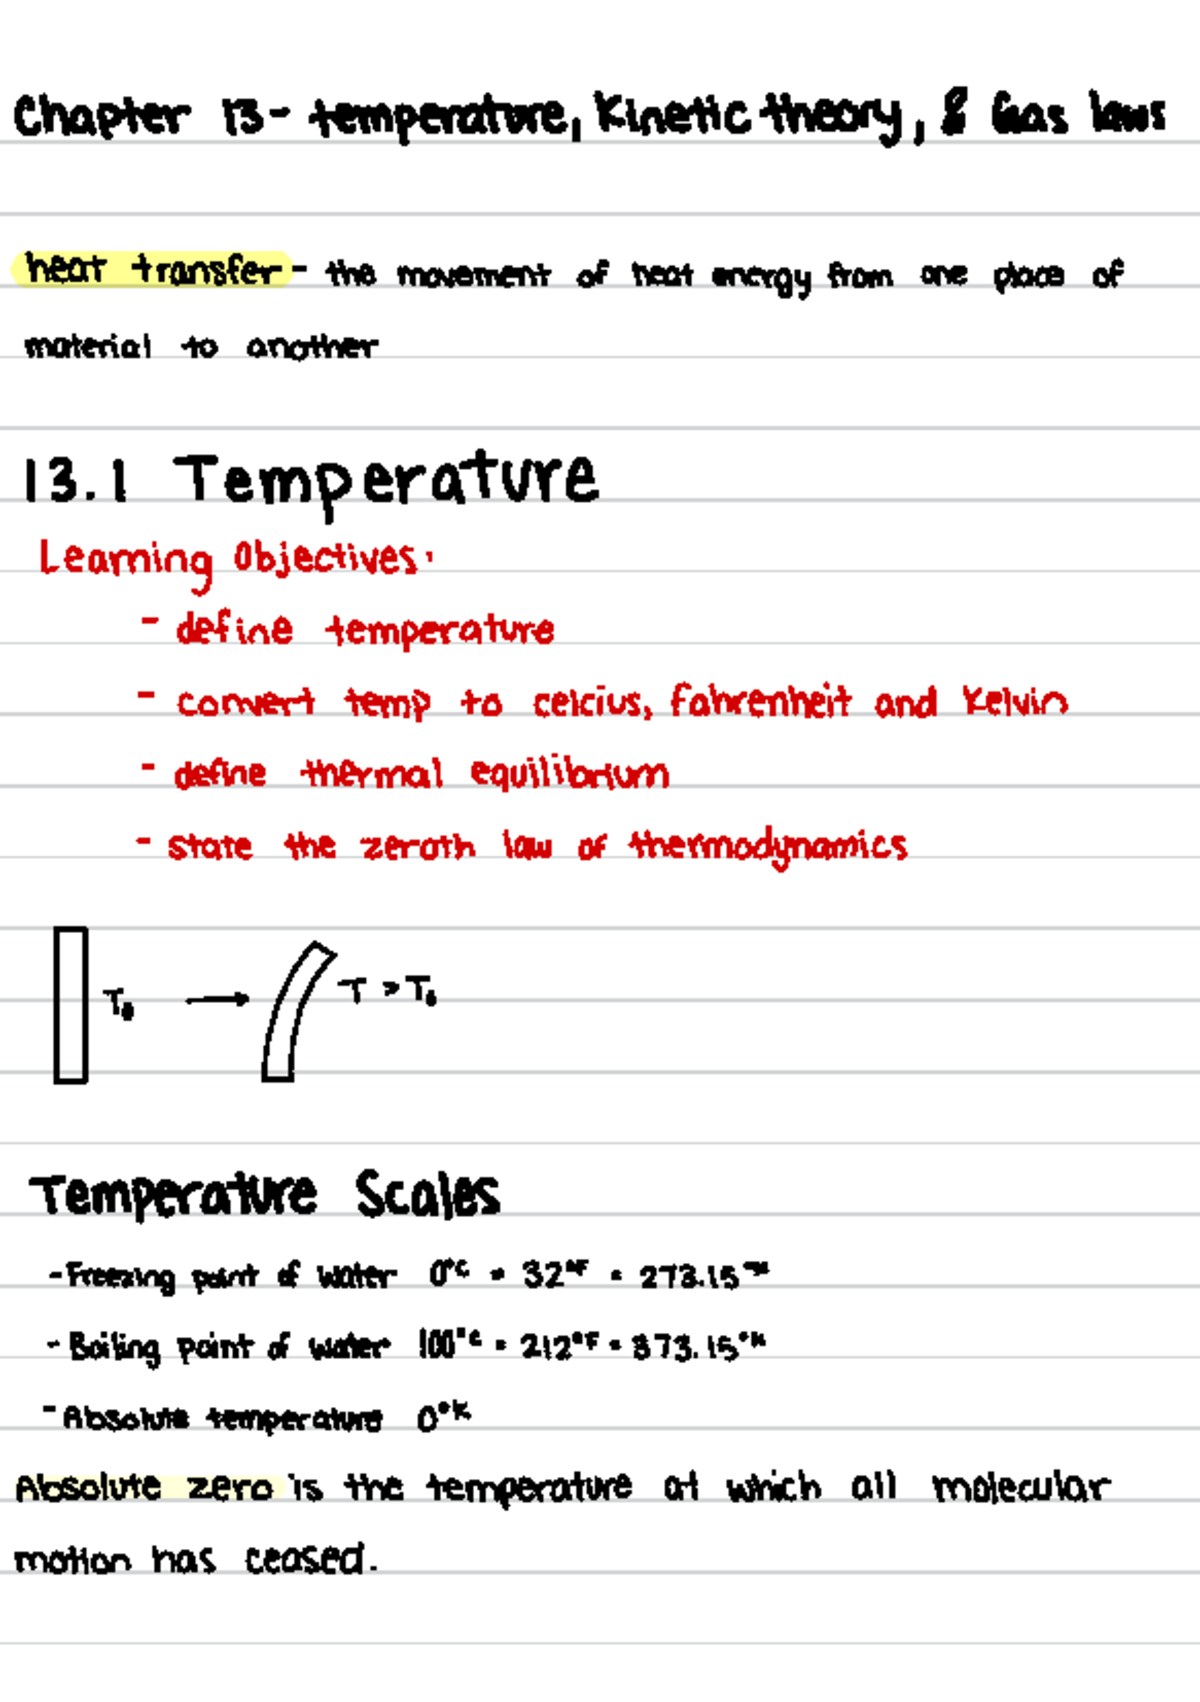 Chapter 13- temperature, Kinetic theory, & Gas laws
heat transfer - the movement of heat energy from one place of
material to another
13.1 Temperature
Learning Objectives:
- define temperature
- convert temp to celcius, fahrenheit and Kelvin
- define thermal equilibrium
- state the zeroth law of thermodynamics
T₀ → T > T₀
Temperature Scales
- Freezing point of water 0°C = 32°F = 273.15°K
- Boiling point of water 100°C = 212°F = 373.15°K
- Absolute temperature 0°K
Absolute zero is the temperature at which all molecular
motion has ceased.